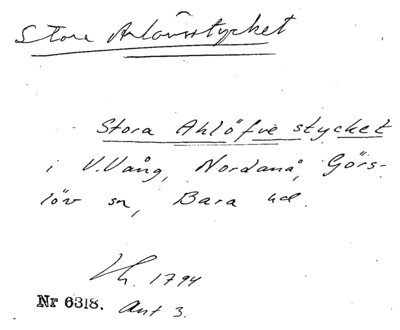 Stora Arlövsstycket
Stora Ahlöfve stycket
i V.Vång, Nordanå, Görs-
löv sn, Bara hd.
Lh. 1794
Nr 6318. Ant 3.